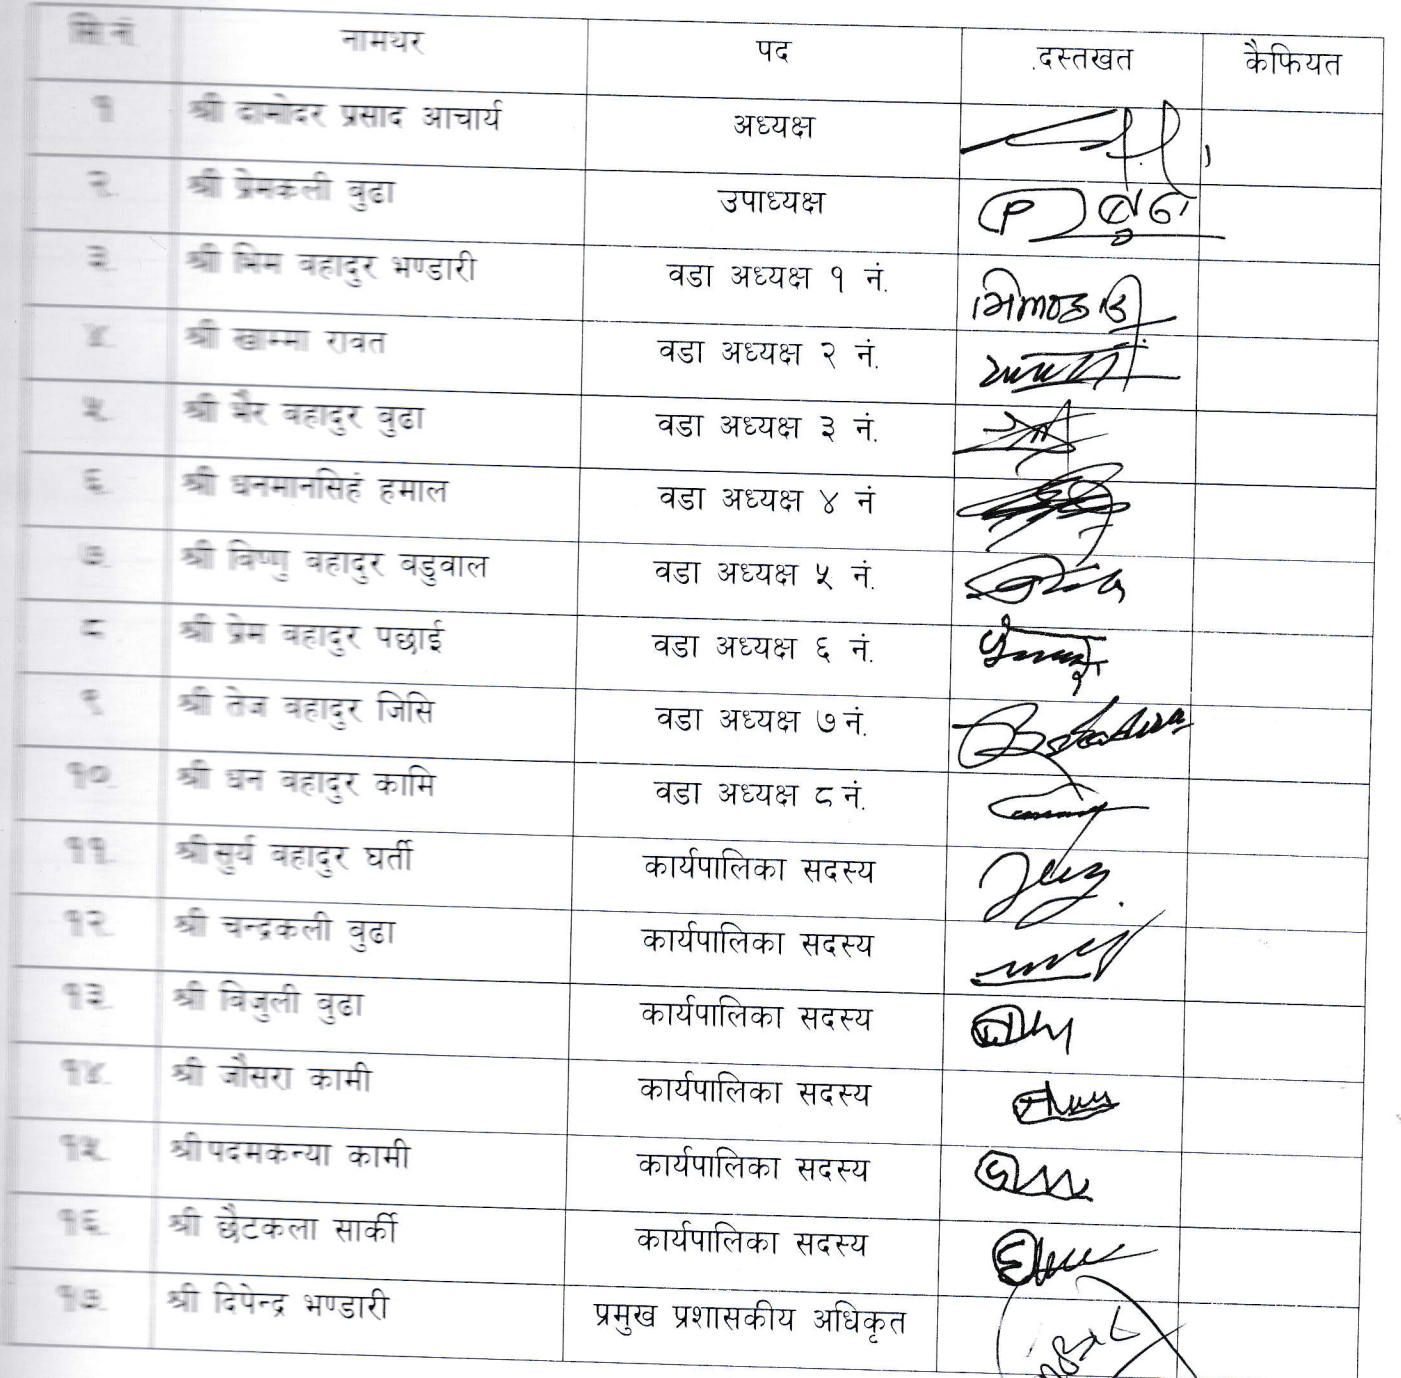 सि.नं. नामथर पद दस्तखत कैफियत
१ श्री दामोदर प्रसाद आचार्य अध्यक्ष
२. श्री प्रेमकली वुढा उपाध्यक्ष
३. श्री भिम वहादुर भण्डारी वडा अध्यक्ष १ नं.
४. श्री खाम्मा रावत वडा अध्यक्ष २ नं.
५. श्री भैर वहादुर वुढा वडा अध्यक्ष ३ नं.
६. श्री धनमानसिहं हमाल वडा अध्यक्ष ४ नं
७. श्री विष्णु वहादुर वडुवाल वडा अध्यक्ष ५ नं.
८ श्री प्रेम वहादुर पछाई वडा अध्यक्ष ६ नं.
९ श्री तेज वहादुर जिसि वडा अध्यक्ष ७ नं.
१०. श्री धन वहादुर कामि वडा अध्यक्ष ८ नं.
११. श्री सुर्य वहादुर घर्ती कार्यपालिका सदस्य
१२. श्री चन्द्रकली वुढा कार्यपालिका सदस्य
१३. श्री विजुली वुढा कार्यपालिका सदस्य
१४. श्री जौसरा कामी कार्यपालिका सदस्य
१५. श्री पदमकन्या कामी कार्यपालिका सदस्य
१६. श्री छैटकला सार्की कार्यपालिका सदस्य
१७. श्री दिपेन्द्र भण्डारी प्रमुख प्रशासकीय अधिकृत